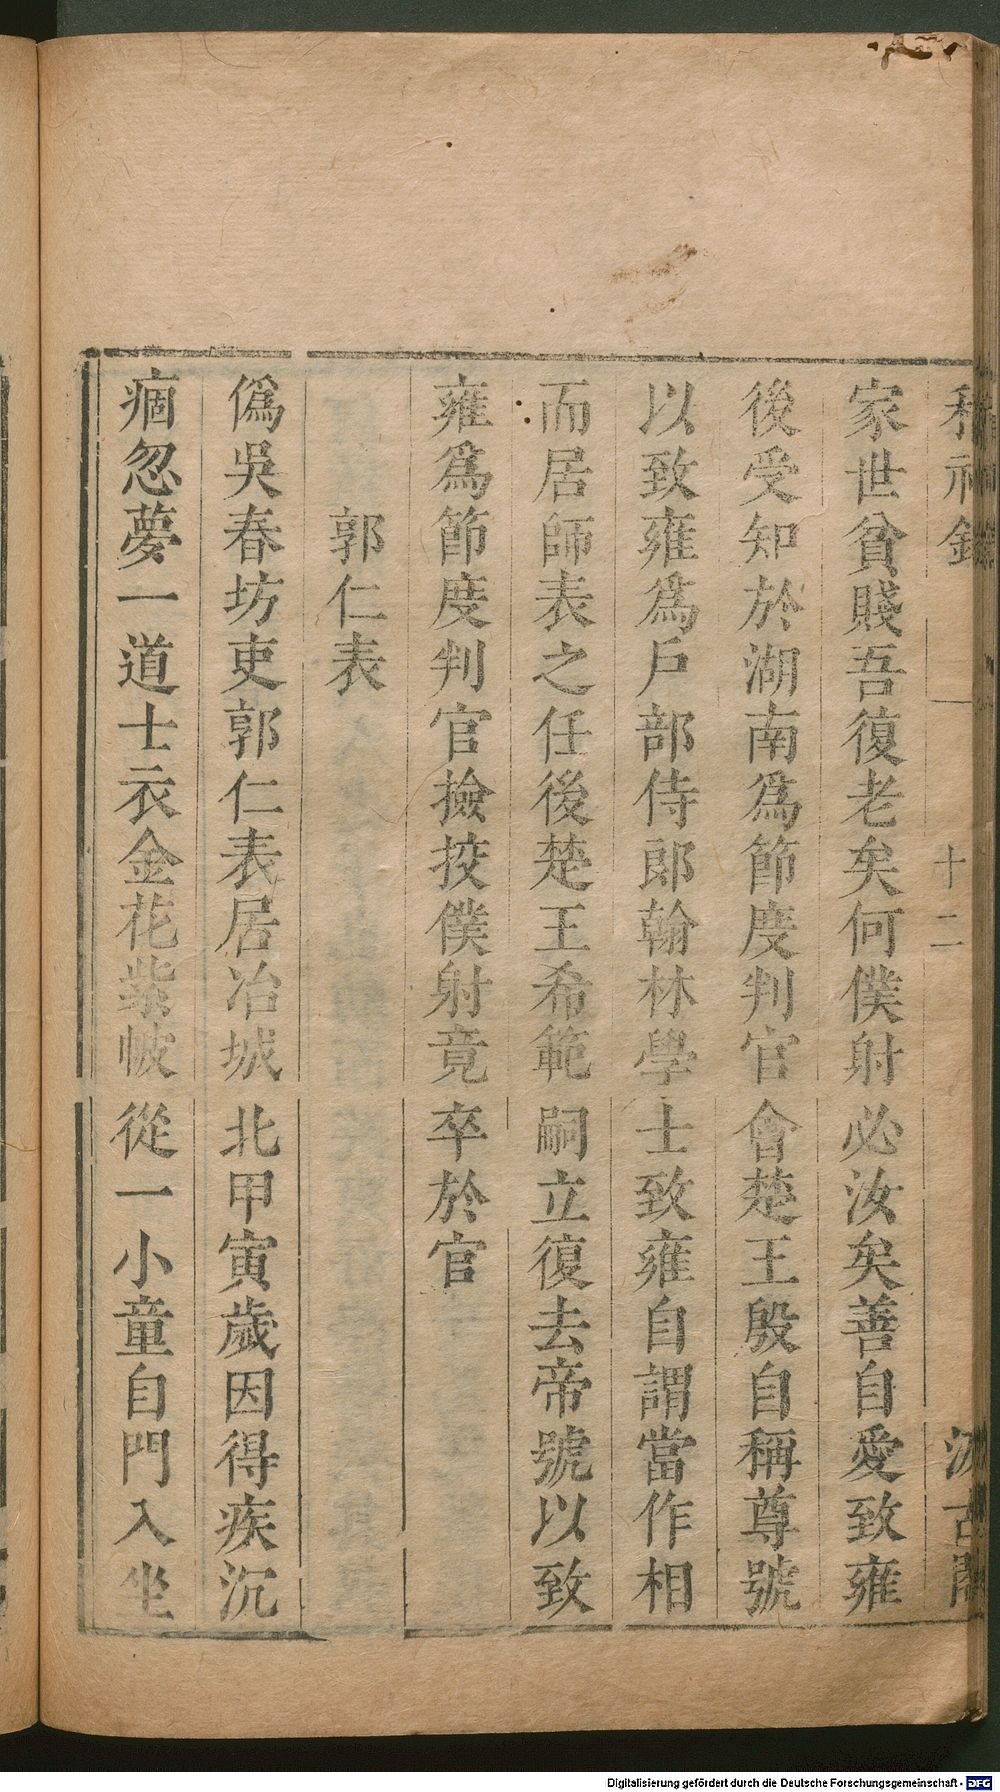 稽神錄 一 十二 汲古閣
家世貧賤吾復老矣何僕射必汝矣善自愛致雍
後受知於湖南爲節度判官會楚王殷自稱尊號
以致雍爲戶部侍郎翰林學士致雍自謂當作相
而居師表之任後楚王希範嗣立復去帝號以致
雍爲節度判官撿挍僕射竟卒於官
郭仁表
僞吳春坊吏郭仁表居冶城北甲寅歲因得疾沉
痼忽夢一道士衣金花紫帔從一小童自門入坐
Digitalisierung gefördert durch die Deutsche Forschungsgemeinschaft - DFG